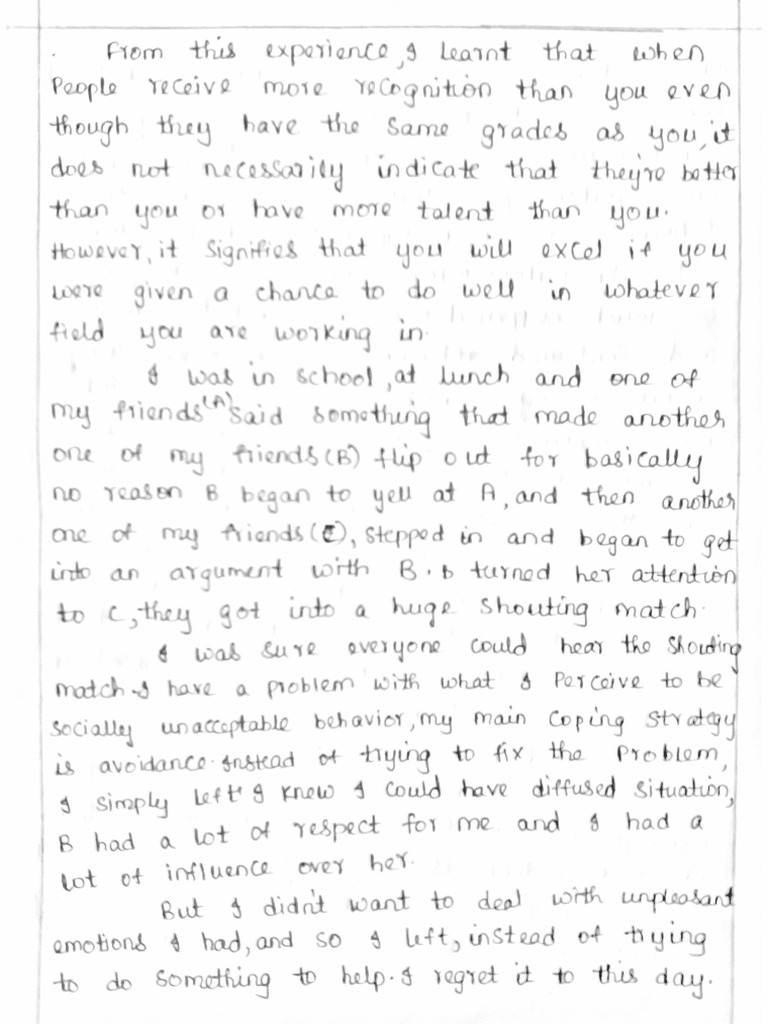 . From this experience, I learnt that when
People receive more recognition than you even
though they have the same grades as you, it
does not necessarily indicate that they're better
than you or have more talent than you.
However, it signifies that you will excel if you
were given a chance to do well in whatever
field you are working in.
I was in school, at lunch and one of
my friends (A) said something that made another
one of my friends (B) flip out for basically
no reason B began to yell at A, and then another
one of my friends (C), stepped in and began to get
into an argument with B. b turned her attention
to C, they got into a huge shouting match.
I was sure everyone could hear the shouting
match. I have a problem with what I perceive to be
socially unacceptable behavior, my main coping strategy
is avoidance. Instead of trying to fix the problem,
I simply left. I knew I could have diffused situation,
B had a lot of respect for me and I had a
lot of influence over her.
But I didn't want to deal with unpleasant
emotions I had, and so I left, instead of trying
to do something to help. I regret it to this day.